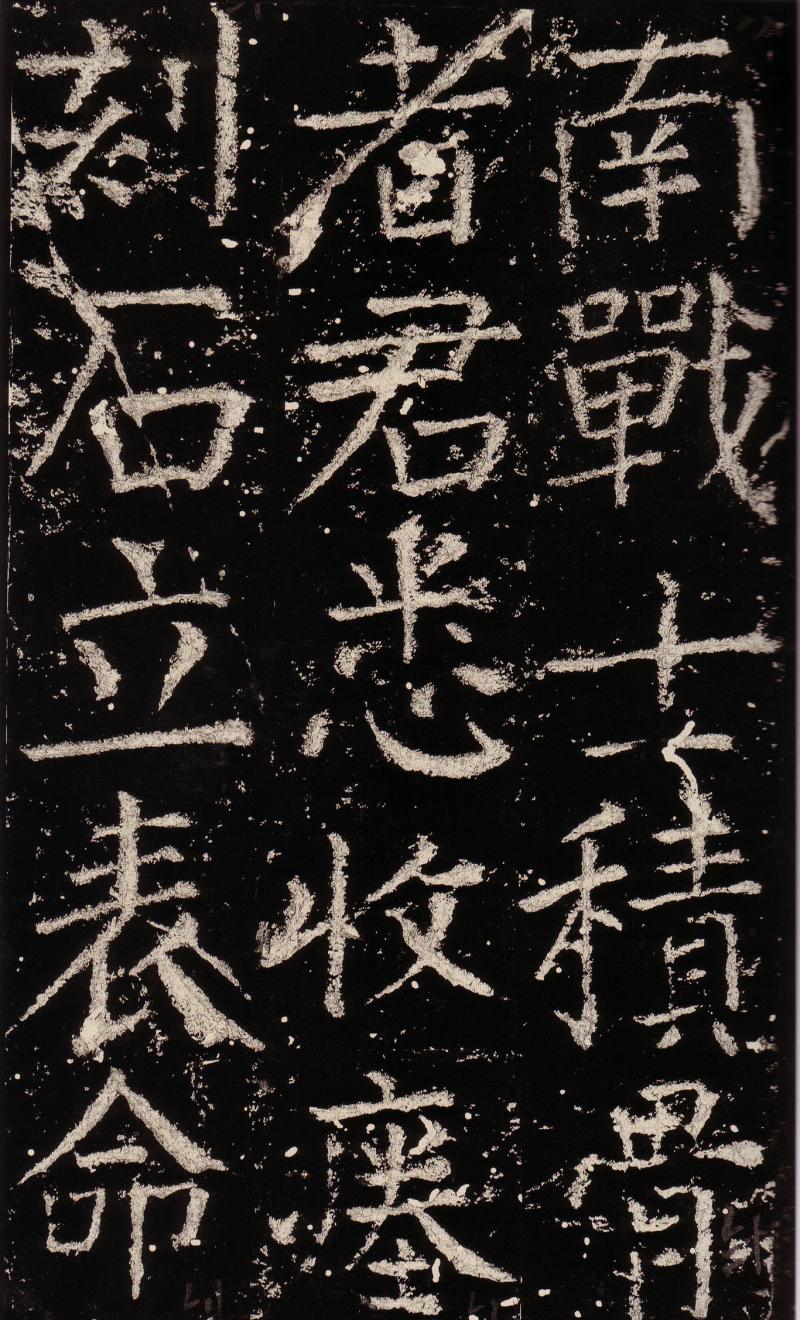 南戰士積骨
者君悉收瘞
刻石立表命